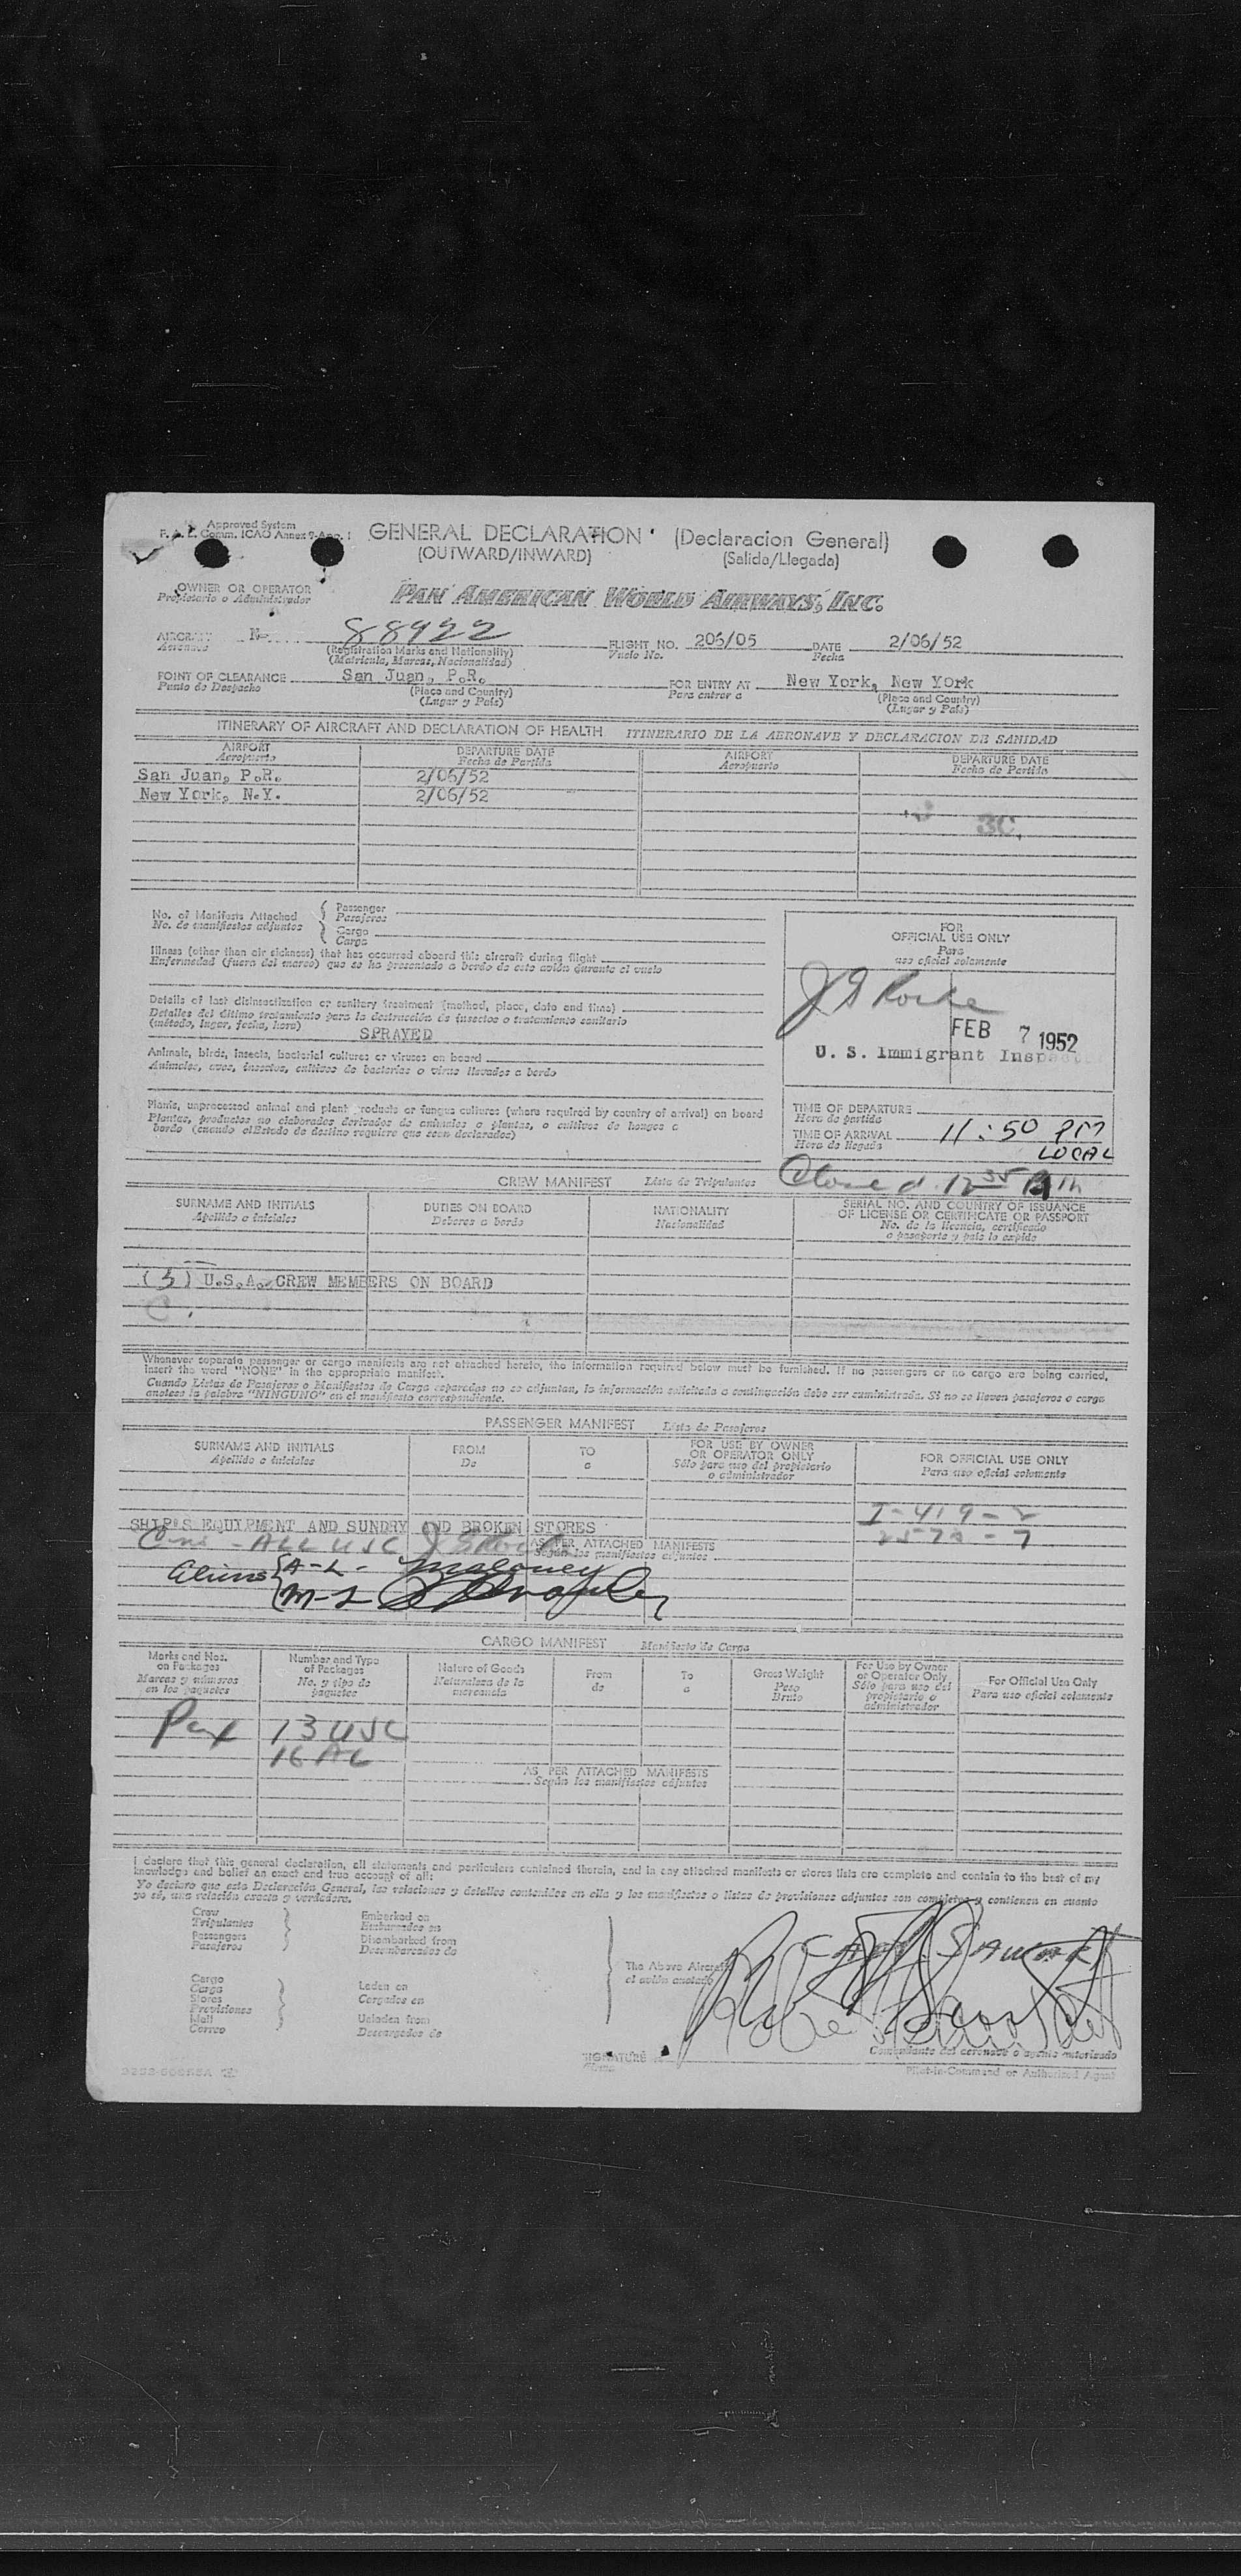 Approved System
F. A. L. Comm. ICAO Annex 9-App. 1
GENERAL DECLARATION (Declaracion General)
(OUTWARD/INWARD) (Salida/Llegada)
OWNER OR OPERATOR
Propietario o Administrador
PAN AMERICAN WORLD AIRWAYS, INC.
AIRCRAFT N- 88922 FLIGHT NO. 206/05 DATE 2/06/52
Aeronave (Registration Marks and Nationality) Vuelo No. Fecha
(Matricula, Marcas, Nacionalidad)
POINT OF CLEARANCE San Juan, P.R. FOR ENTRY AT New York, New York
Punto de Despacho (Place and Country) Para entrar a (Place and Country)
(Lugar y País) (Lugar y País)
ITINERARY OF AIRCRAFT AND DECLARATION OF HEALTH ITINERARIO DE LA AERONAVE Y DECLARACION DE SANIDAD
AIRPORT DEPARTURE DATE AIRPORT DEPARTURE DATE
Aeropuerto Fecha de Partida Aeropuerto Fecha de Partida
San Juan, P.R. 2/06/52
New York, N.Y. 2/06/52
30,
No. of Manifests Attached Passenger
No. de manifiestos adjuntos Pasajeros
Cargo
Carga
Illness (other than air sickness) that has occurred aboard this aircraft during flight
Enfermedad (fuera del mareo) que se ha presentado a bordo de este avión durante el vuelo
Details of last disinsectization or sanitary treatment (method, place, date and time)
Detalles del último tratamiento para la destrucción de insectos o tratamiento sanitario
(método, lugar, fecha, hora)
SPRAYED
Animals, birds, insects, bacterial cultures or viruses on board
Animales, aves, insectos, cultivos de bacterias o virus llevados a bordo
Plants, unprocessed animal and plant products or fungus cultures (where required by country of arrival) on board
Plantas, productos no elaborados derivados de animales o plantas, o cultivos de hongos a
bordo (cuando el Estado de destino requiere que sean declarados)
FOR
OFFICIAL USE ONLY
Para
uso oficial solamente
FEB 7 1952
U. S. Immigrant Inspector
TIME OF DEPARTURE
Hora de partida
TIME OF ARRIVAL 11:50 PM
Hora de llegada LOCAL
Closed 12 35
CREW MANIFEST Lista de Tripulantes
SURNAME AND INITIALS DUTIES ON BOARD NATIONALITY SERIAL NO. AND COUNTRY OF ISSUANCE
OF LICENSE OR CERTIFICATE OR PASSPORT
Apellido e iniciales Deberes a bordo Nacionalidad No. de la licencia, certificado
o pasaporte y país lo expide
(5) U.S.A. CREW MEMBERS ON BOARD
Whenever separate passenger or cargo manifests are not attached hereto, the information required below must be furnished. If no passengers or no cargo are being carried,
insert the word "NONE" in the appropriate manifest.
Cuando Listas de Pasajeros o Manifiestos de Carga separados no se adjuntan, la información solicitada a continuación debe ser suministrada. Si no se llevan pasajeros o carga
anotese la palabra "NINGUNO" en el manifiesto correspondiente.
PASSENGER MANIFEST Lista de Pasajeros
SURNAME AND INITIALS FROM TO FOR USE BY OWNER
OR OPERATOR ONLY FOR OFFICIAL USE ONLY
Apellido e iniciales De a Sólo para uso del propietario
o administrador Para uso oficial solamente
I-419-2
SHIP'S EQUIPMENT AND SUNDRY AND BROKEN STORES
AS PER ATTACHED MANIFESTS
Según los manifiestos adjuntos
- ALL USC
Aliens A-L- Maloney
M-Z
CARGO MANIFEST Manifiesto de Carga
Marks and Nos.
on Packages
Marcas y números
en los paquetes
Number and Type
of Packages
No. y tipo de
paquetes
Nature of Goods
Naturaleza de la
mercancia
From
de
To
a
Gross Weight
Peso
Bruto
For Use by Owner
or Operator Only
Sólo para uso del
propietario o
administrador
For Official Use Only
Para uso oficial solamente
Pax 13 USC
16 AL
AS PER ATTACHED MANIFESTS
Según los manifiestos adjuntos
I declare that this general declaration, all statements and particulars contained therein, and in any attached manifests or stores lists are complete and contain to the best of my
knowledge and belief an exact and true account of all:
Yo declaro que esta Declaración General, las relaciones y detalles contenidos en ella y los manifiestos o listas de provisiones adjuntos son completos y contienen en cuanto
yo sé, una relación exacta y verdadera.
Crew
Tripulantes
Passengers
Pasajeros
Embarked on
Embarcados en
Disembarked from
Desembarcados de
Cargo
Carga
Stores
Provisiones
Mail
Correo
Laden on
Cargados en
Unladen from
Descargados de
The Above Aircraft
el avión anotado
SIGNATURE
Firma
Comandante del aeronave o agente autorizado
Pilot-in-Command or Authorized Agent